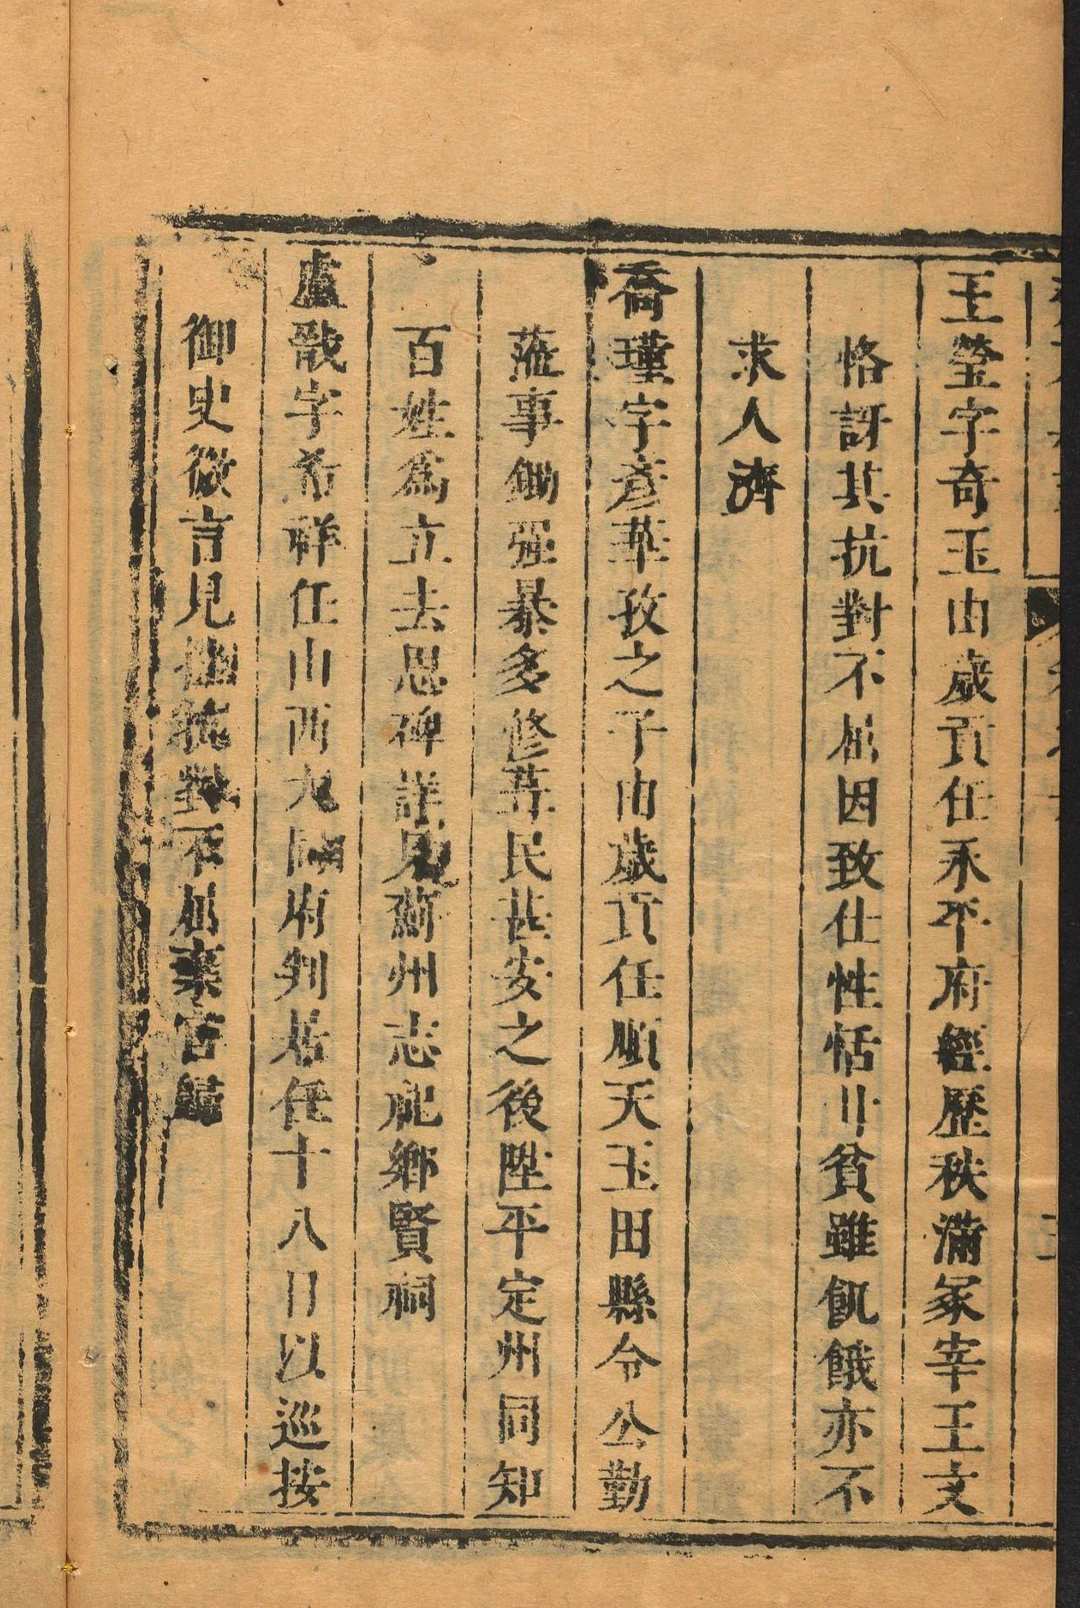 王瑩字奇玉由歲貢任永平府經歷秩滿冢宰王文
恪訝其抗對不屈因致仕性恬甘貧雖飢餓亦不
求人濟
喬瑾字彥華孜之子由歲貢任順天玉田縣令公勤
蒞事鋤強暴多修葺民甚安之後陞平定州同知
百姓為立去思碑詳見薊州志祀鄉賢祠
盧戩字希祥任山西大同府判居任十八日以巡按
御史微言見拂抗對不屈棄官歸